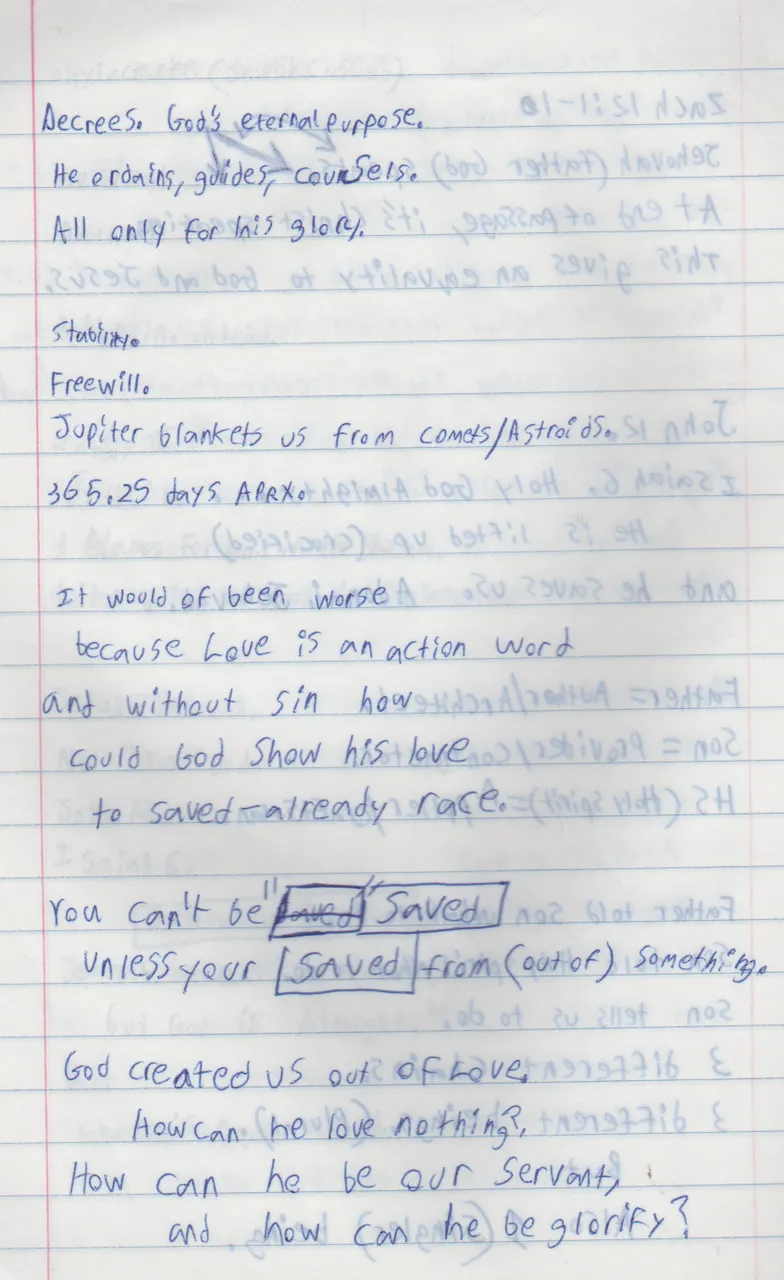 Decrees. God's eternal purpose.
He ordains, guides, counsels.
All only for his glory.
Stability.
Freewill.
Jupiter blankets us from comets/Astroids.
365.25 days APRX.
It would of been worse
because Love is an action word
and without sin how
could God show his love
to saved-already race.
You can't be "saved" Saved
unless your saved from (out of) something.
God created us out of Love.
How can he love nothing?,
How can he be our servant,
and how can he be glorify?